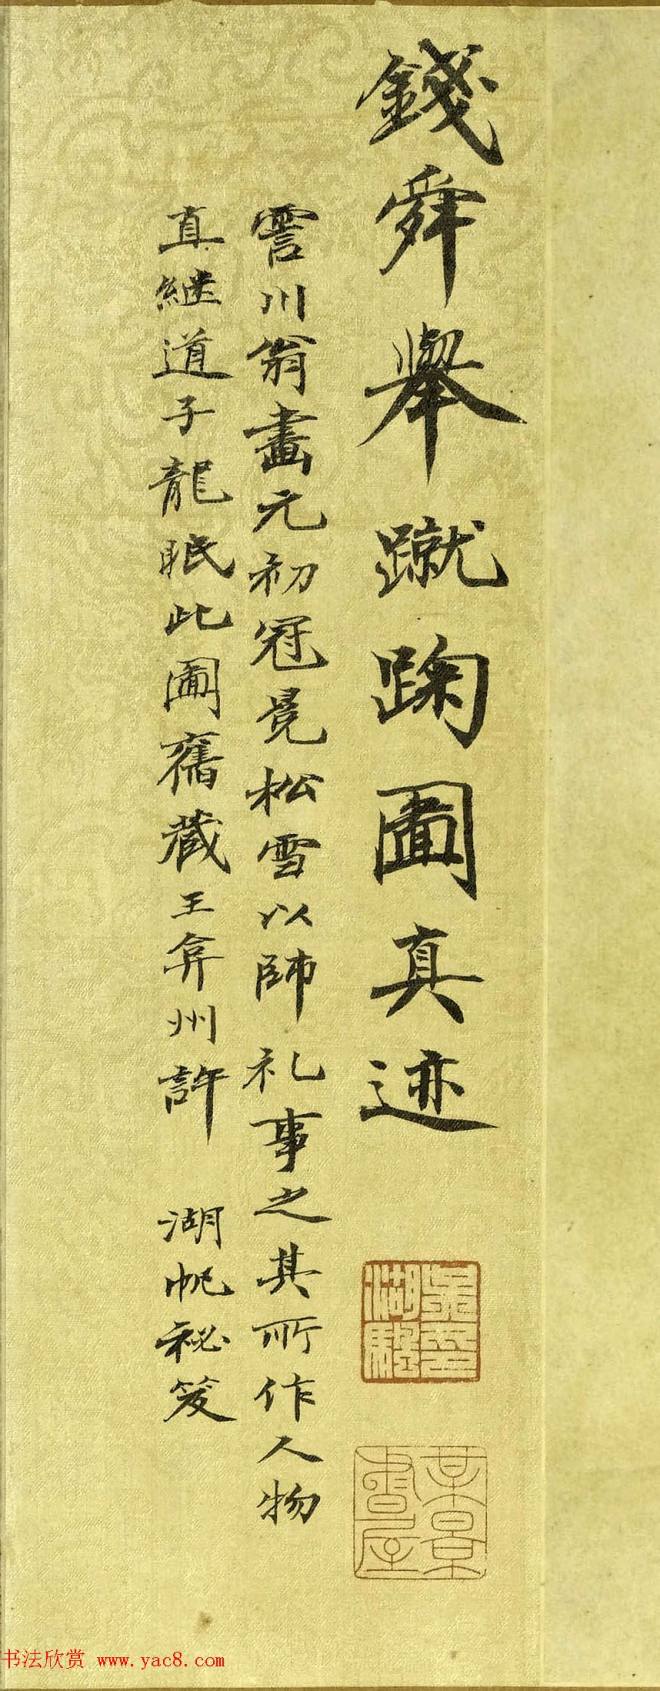 錢舜舉蹴踘圖真迹
霅川翁畫元初冠冕松雪以師礼事之其所作人物
真継道子龍眠此圖舊藏王弇州許 湖帆祕笈
梅景書屋
书法欣赏 www.yac8.com